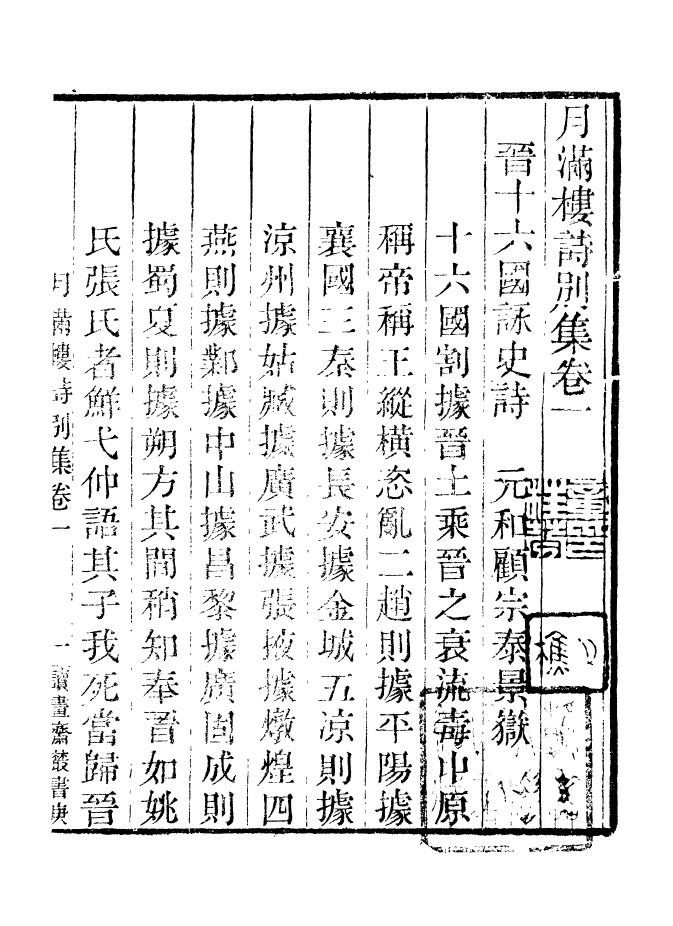 月滿樓詩別集卷一
晉十六國詠史詩　元和顧宗泰景嶽
十六國割據晉土乘晉之衰流毒中原
稱帝稱王縱橫恣亂二趙則據平陽據
襄國三秦則據長安據金城五凉則據
涼州據姑臧據廣武據張掖據燉煌四
燕則據鄴據中山據昌黎據廣固成則
據蜀夏則據朔方其間稍知奉晉如姚
氏張氏者鮮弋仲語其子我死當歸晉
月滿樓詩別集卷一　一　讀畫齋叢書庚
樵